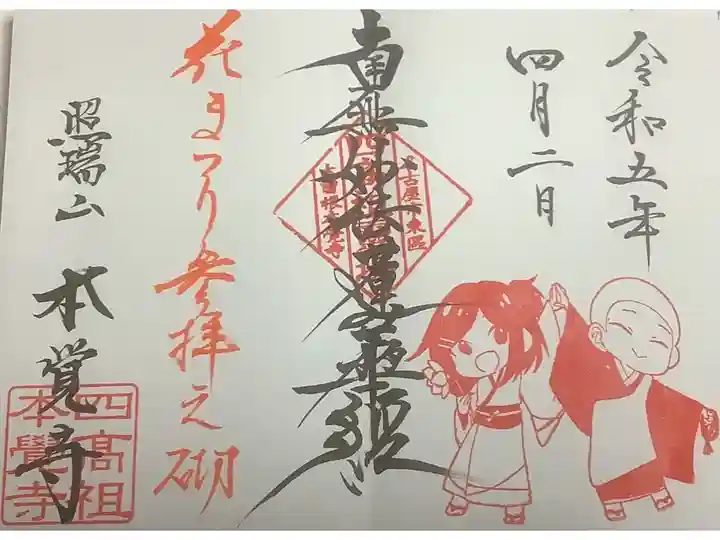 令和五年
四月二日
南無妙法蓮華經
名古屋市東區
花まつり参拝之砌
照瑞山 本覚寺
四高祖
本覺寺